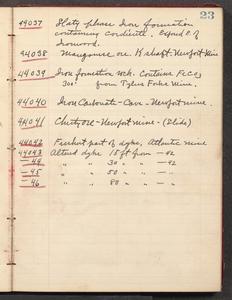 23
44037 Slaty phase Iron formation
containing cordierite. Exposed E. of
Ironwood.
44038 Manganese ore. K shaft. Newport Mine
44039 Iron formation rock. Contains FeCO3
300' from Tylers Forks Mine.
44040 Iron Carbonate - Core - Newport mine.
44041 Cherty ore - Newport mine - (Slide)
44042 Freshest part of dyke, Atlantic mine
44043 Altered dyke 15 ft from - 42
- 44 " " 30 " " - 42
- 45 " " 50 " " "
- 46 " " 80 " " "